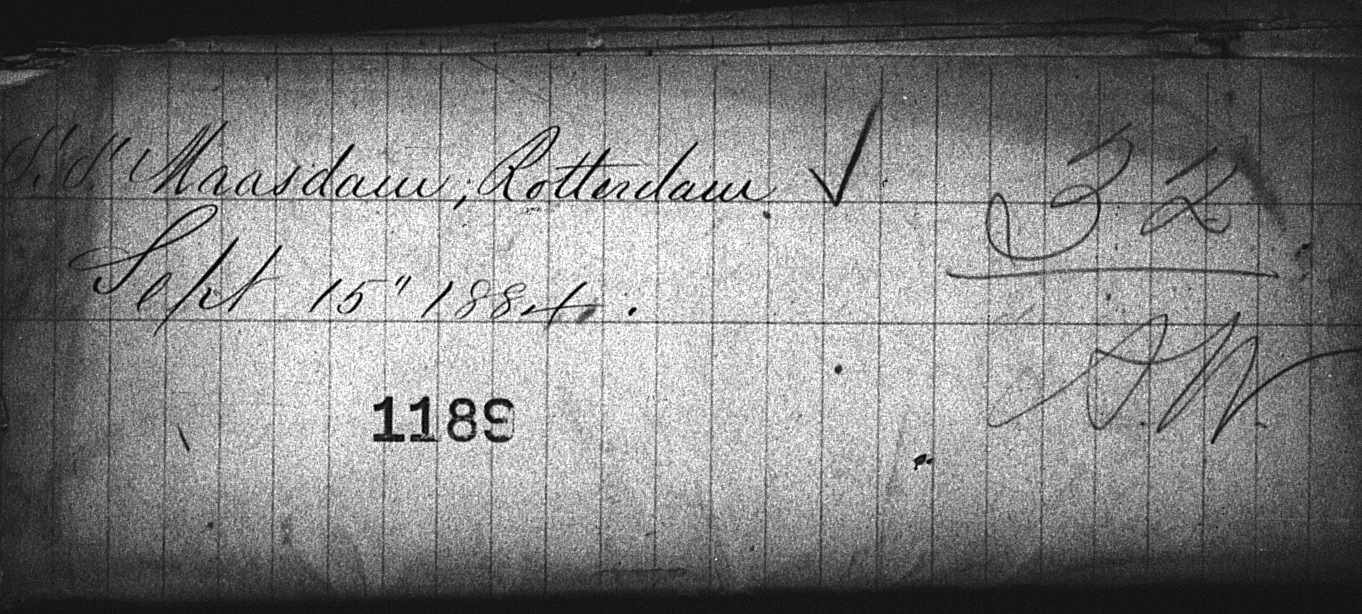 S.S. Maasdam, Rotterdam ✓
32
Sept 15" 1884.
1189